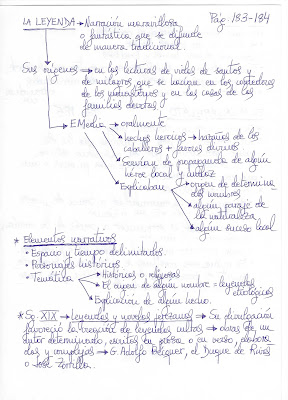 Pág. 183-184
LA LEYENDA → Narración maravillosa
o fantástica que se difunde
de manera tradicional.
Sus orígenes → en las lecturas de vidas de santos y
de milagros que se hacían en los comedores
de los monasterios y en las casas de las
familias devotas
E Media → oralmente
→ hechos heroicos → hazañas de los
caballeros + favores divinos.
→ Servían de propaganda de algún
héroe local y
→ Explicaban → origen de determina
dos nombres
→ algún paraje de
la naturaleza
→ algún suceso local
* Elementos narrativos
• Espacio y tiempo delimitados.
• Personajes históricos
• Temática → Históricos o religiosas
→ El origen de algún nombre = leyendas
etiológicas
→ Explicación de algún hecho.
* Sg. XIX → Leyendas y novelas por entregas → Su divulgación
favoreció la creación de leyendas cultas → obras de un
autor determinado, escritas en prosa o en verso, elabora
das y complejas → G. Adolfo Bécquer, el Duque de Rivas
o José Zorrilla.